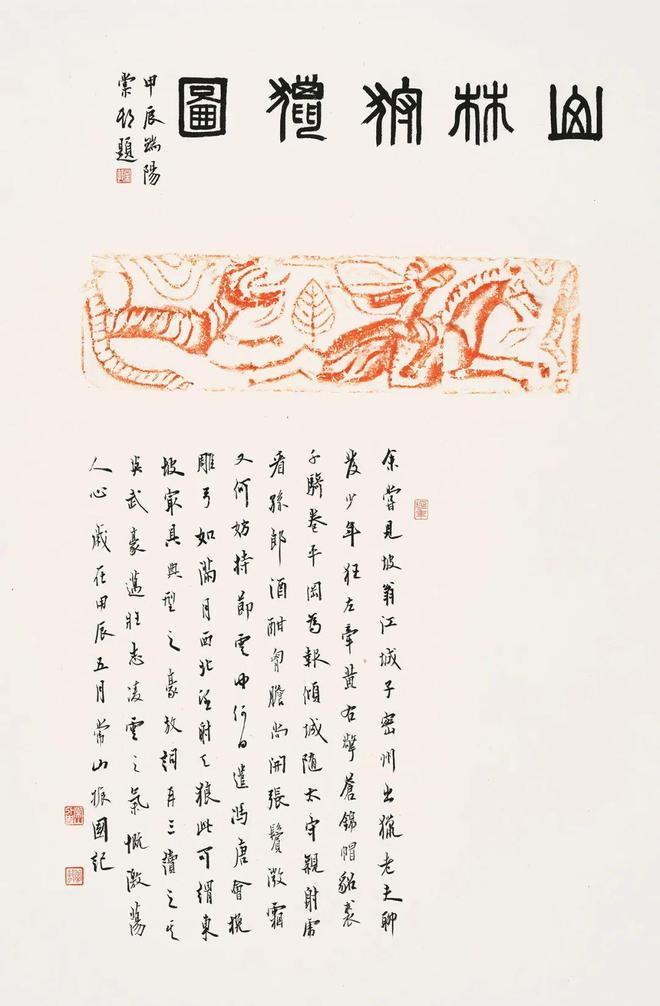 山林狩獵圖
甲辰端陽
棠邨題
余嘗見坡翁江城子密州出獵老夫聊
發少年狂左牽黃右擎蒼錦帽貂裘
千騎卷平岡為報傾城隨太守親射虎
看孫郎酒酣胸膽尚開張鬢微霜
又何妨持節雲中何日遣馮唐會挽
雕弓如滿月西北望射天狼此可謂東
坡最具典型之豪放詞再三讀之其
英武豪邁壯志凌雲之氣慨激蕩
人心歲在甲辰五月常山振國記